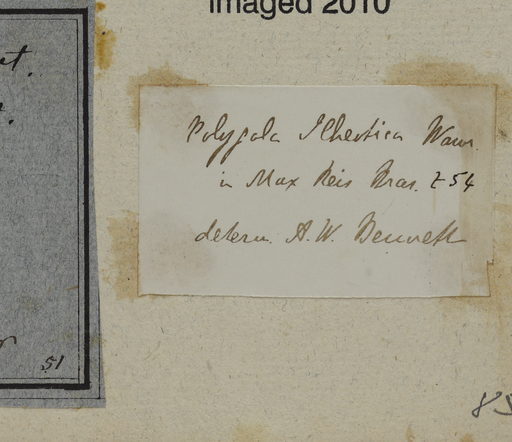 Imaged 2010
et.
Polygala Ilheotica Wawr.
in Max Reis Bras. t 54
determ. A. W. Bennett
51
85